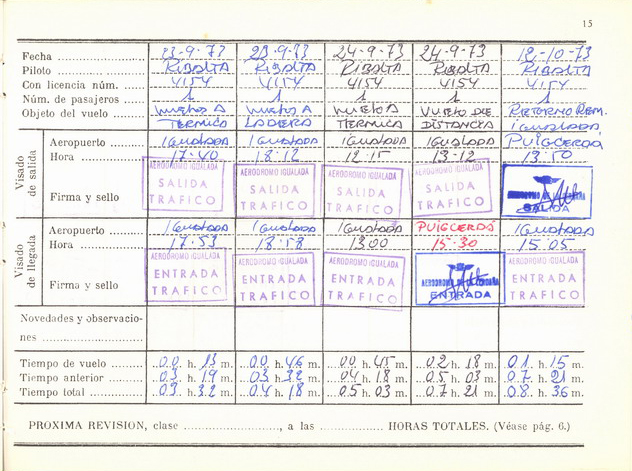 15
Fecha 23-9-73 23-9-73 24-9-73 24-9-73 12-10-73
Piloto RIBALTA RIBALTA RIBALTA RIBALTA RIBALTA
Con licencia núm. 4154 4154 4154 4154 4154
Núm. de pasajeros 1 1 1 1 1
Objeto del vuelo VUELO A VUELO A VUELO A VUELO DE RETORNO REM.
TERMICA LADERA TERMICA DISTANCIA IGUALADA
Visado de salida
Aeropuerto IGUALADA IGUALADA IGUALADA IGUALADA PUIGCERDA
Hora 17-40 18-12 12-15 13-12 13-50
Firma y sello
AERODROMO IGUALADA AERODROMO IGUALADA AERODROMO IGUALADA AERODROMO IGUALADA AERODROMO DE
SALIDA SALIDA SALIDA SALIDA SALIDA
TRAFICO TRAFICO TRAFICO TRAFICO
Visado de llegada
Aeropuerto IGUALADA IGUALADA IGUALADA PUIGCERDÁ IGUALADA
Hora 17-53 18-58 1300 15-30 15-05
Firma y sello
AERODROMO IGUALADA AERODROMO IGUALADA AERODROMO IGUALADA AERODROMO DE AERODROMO IGUALADA
ENTRADA ENTRADA ENTRADA ENTRADA ENTRADA
TRAFICO TRAFICO TRAFICO TRAFICO
Novedades y observacio-
nes
Tiempo de vuelo 00 h. 13 m. 00 h. 46 m. 00 h. 45 m. 02 h. 18 m. 01 h. 15 m.
Tiempo anterior 03 h. 19 m. 03 h. 32 m. 04 h. 18 m. 05 h. 03 m. 07 h. 21 m.
Tiempo total 03 h. 32 m. 04 h. 18 m. 05 h. 03 m. 07 h. 21 m. 08 h. 36 m.
PROXIMA REVISION, clase , a las HORAS TOTALES. (Véase pág. 6.)